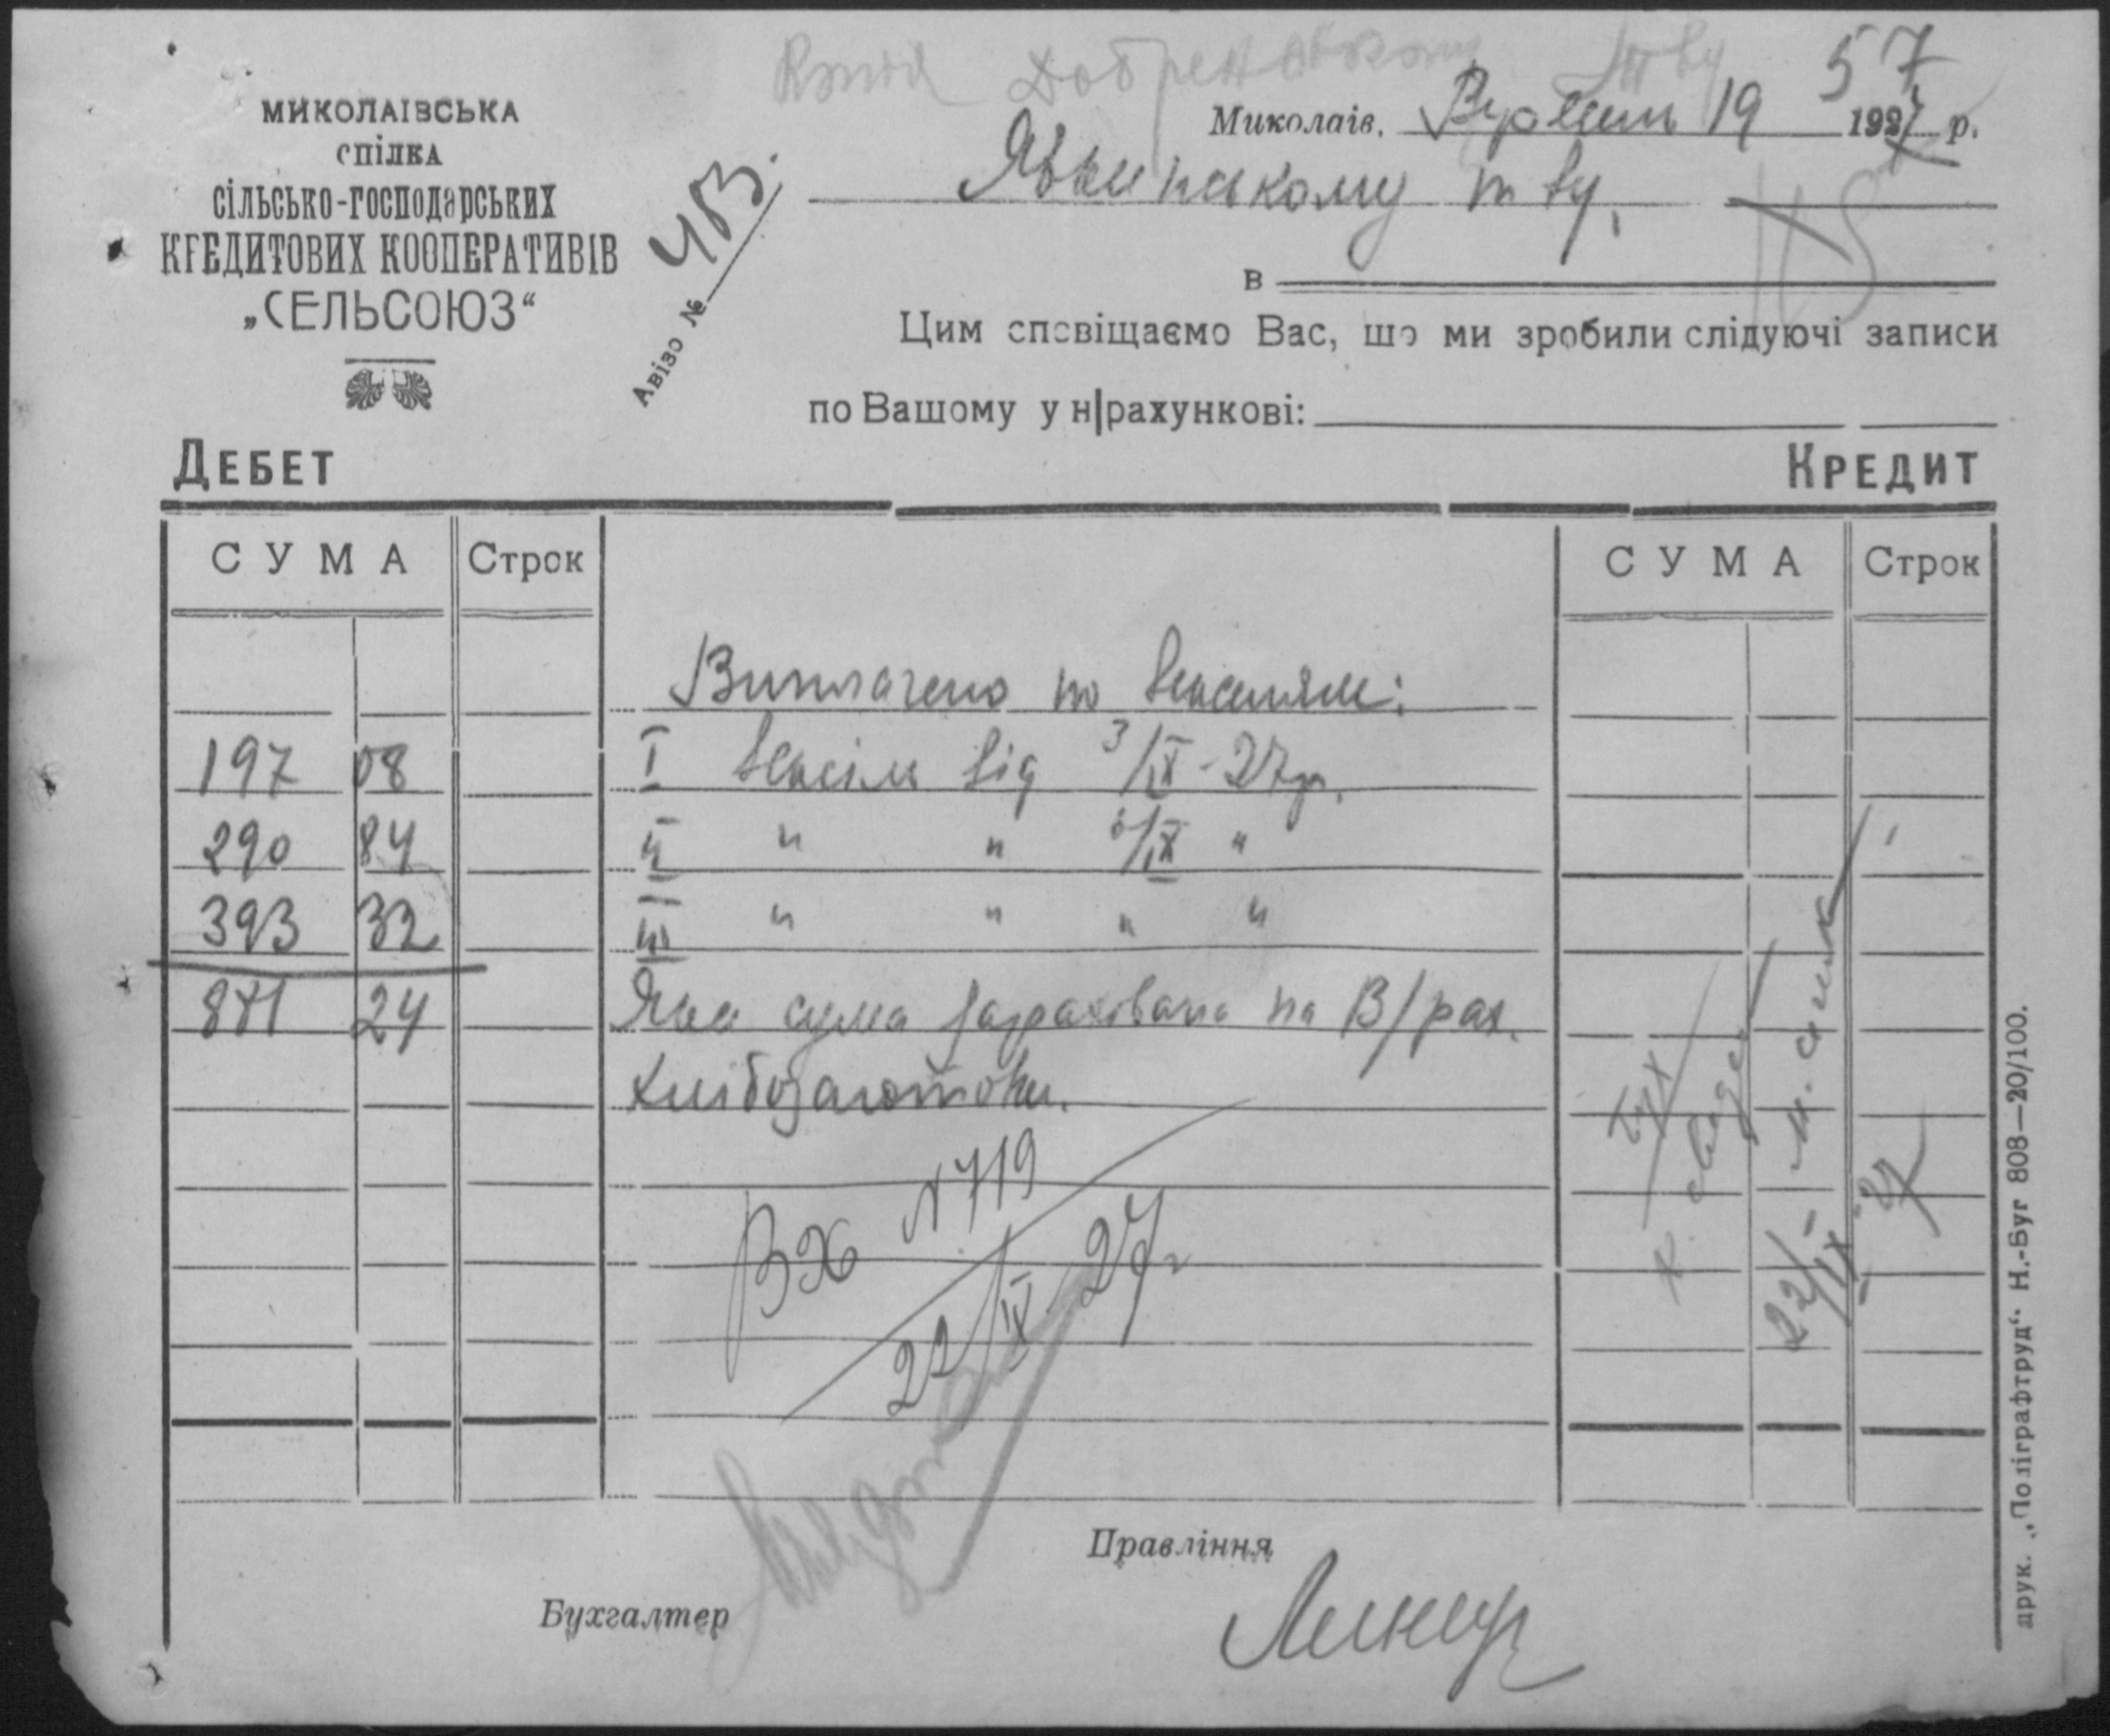 Копія Добренському т-ву
57
МИКОЛАЇВСЬКА
СПІЛКА
СІЛЬСЬКО-ГОСПОДАРСЬКИХ
КРЕДИТОВИХ КООПЕРАТИВІВ
„СЕЛЬСОЮЗ“
Авізо № 483.
Миколаїв, Вересень 19 1927 р.
Явкинському т-ву,
в
Цим сповіщаємо Вас, що ми зробили слідуючі записи
по Вашому у н|рахункові:
ДЕБЕТ
КРЕДИТ
СУМА Строк СУМА Строк
Виплачено по векселям:
197 08 I вексіль від 3/IX-27р.
290 84 II " " 6/IX "
393 32 III " " " "
881 24 Яка сума зарахована на В/рах.
хлібозаготовки.
ВХ N 719
22/IX 27г
Бух
22/IX-27
Правління
Бухгалтер
друк. „Поліграфтруд“ Н.-Буг 808—20/100.